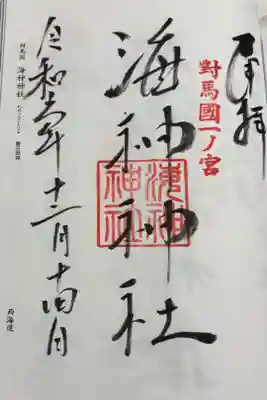 奉拝
對馬國一ノ宮
海神神社
海神神社
令和六年十二月十四日
対馬国
海神神社
西海道